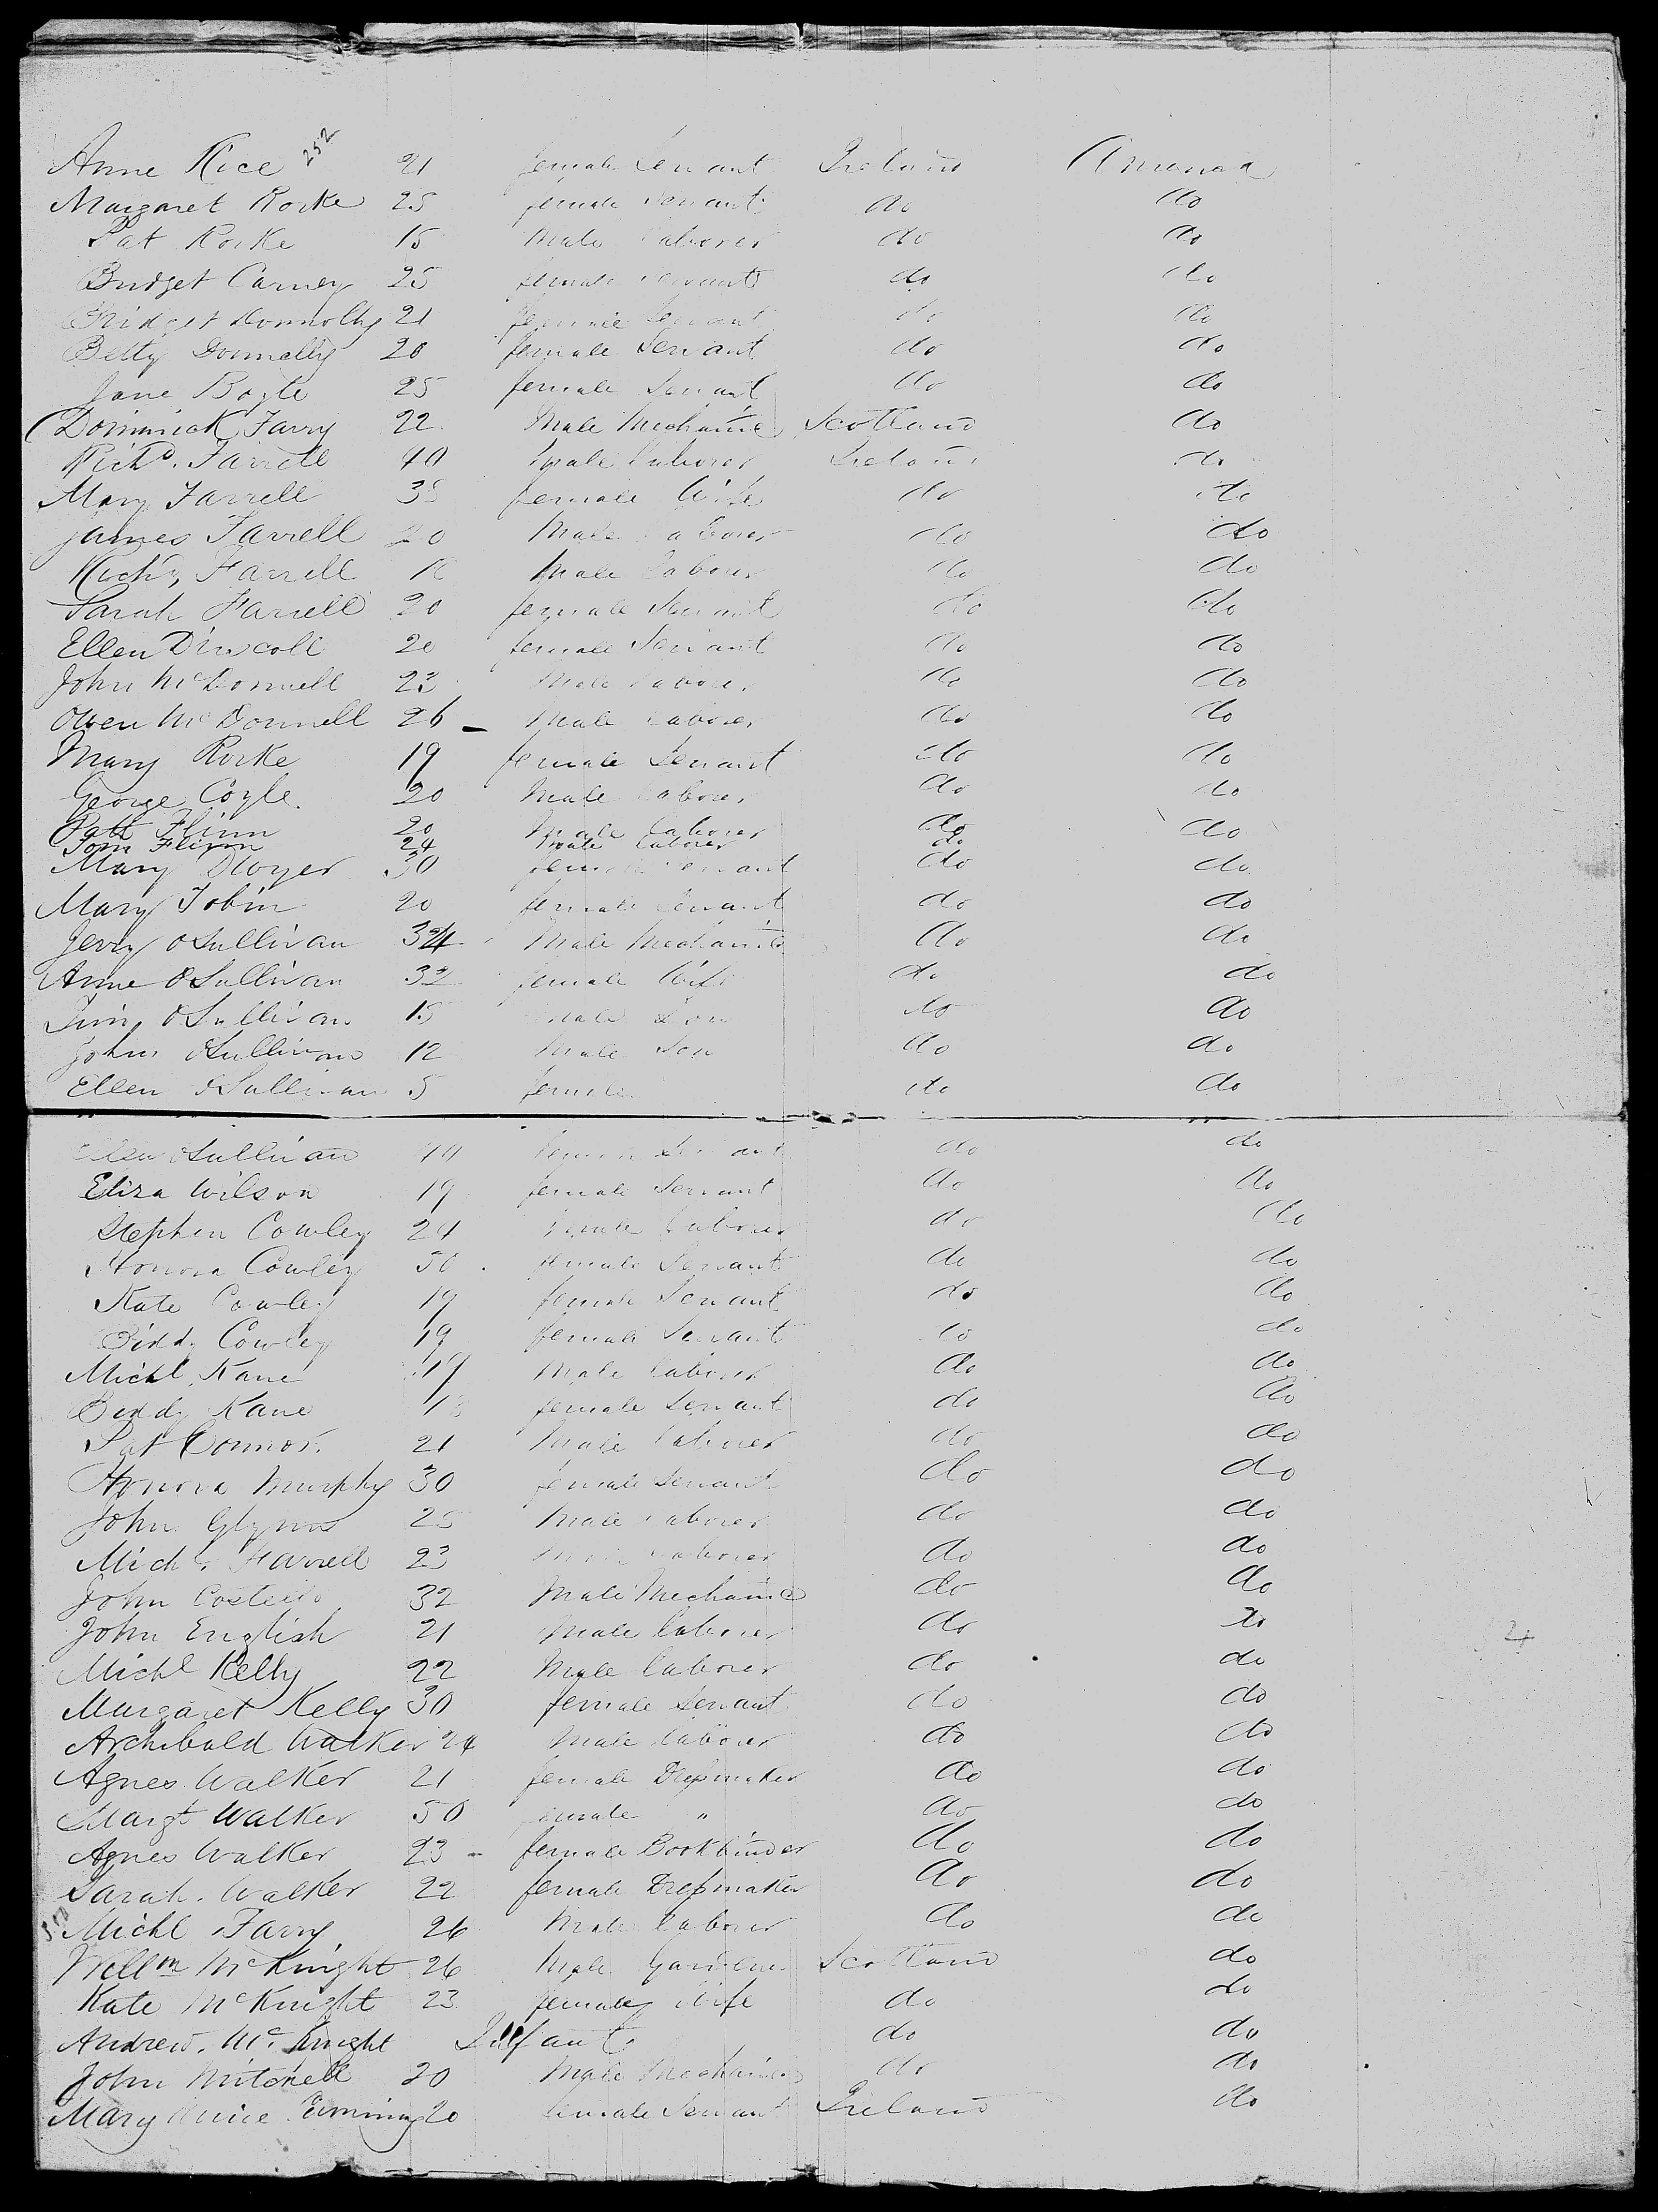 252
Anne Rice 21 female Servant Ireland America
Margaret Rorke 25 female Servant do do
Pat Rorke 15 Male Laborer do do
Bridget Carney 25 female Servant do do
Bridget Donnolly 21 female Servant do do
Betty Donnelly 20 female Servant do do
Jane Boyle 25 female Servant do do
Dominick Farry 22 Male Mechanic Scotland do
Richd. Farrell 40 Male Laborer Ireland do
Mary Farrell 35 female Wife do do
James Farrell 20 Male Laborer do do
Richd, Farrell Male Laborer do do
Sarah Farrell 20 female Servant do do
Ellen Driscoll 20 female Servant do do
John McDonnell 23 Male Laborer do do
Owen McDonnell 26 Male Laborer do do
Mary Rorke 19 female Servant do do
George Coyle. 20 Male Laborer do do
Patt Flinn 20 Male Laborer do do
Tom Flinn 24 Male Laborer do
Mary Dwyer 30 female Servant do do
Mary Tobin 20 female Servant do do
Jerry OSullivan 34 Male Mechanic do do
Anne OSullivan 32 female Wife do do
Tim, OSullivan 15 Male Son do do
John OSullivan 12 Male Son do do
Ellen OSullivan 5 female do do
Ellen OSullivan female Servant do do
Eliza Wilson 19 female Servant do do
Stephen Cowley 24 Male Laborer do do
Honora Cowley 50 female Servant do do
Kate Cowley 19 female Servant do do
Biddy Cowley 19 female Servant do do
Michl. Kane 19 Male Laborer do do
Biddy Kane 18 female Servant do do
Pat Connor. 21 Male Laborer do do
Honora Murphy 30 female Servant do do
John Glynn 25 Male Laborer do do
Michl. Farrell 23 Male Laborer do do
John Costello 32 Male Mechanic do do
John English 21 Male Laborer do do
Michl Kelly 22 Male Laborer do do
Margaret Kelly 30 female Servant do do
Archibald Walker 24 Male Laborer do do
Agnes Walker 21 female Dressmaker do do
Margt Walker 50 female " do do
Agnes Walker 23 female Bookbinder do do
Sarah. Walker 22 female Dressmaker do do
Michl Farry 26 Male Laborer do do
Willm McKnight 26 Male Gardener Scotland do
Kate McKnight 23 female Wife do do
Andrew. Mc.Knight Infant do do
John Mitchell 20 Male Mechanic do do
Mary 20 female Servant Ireland do